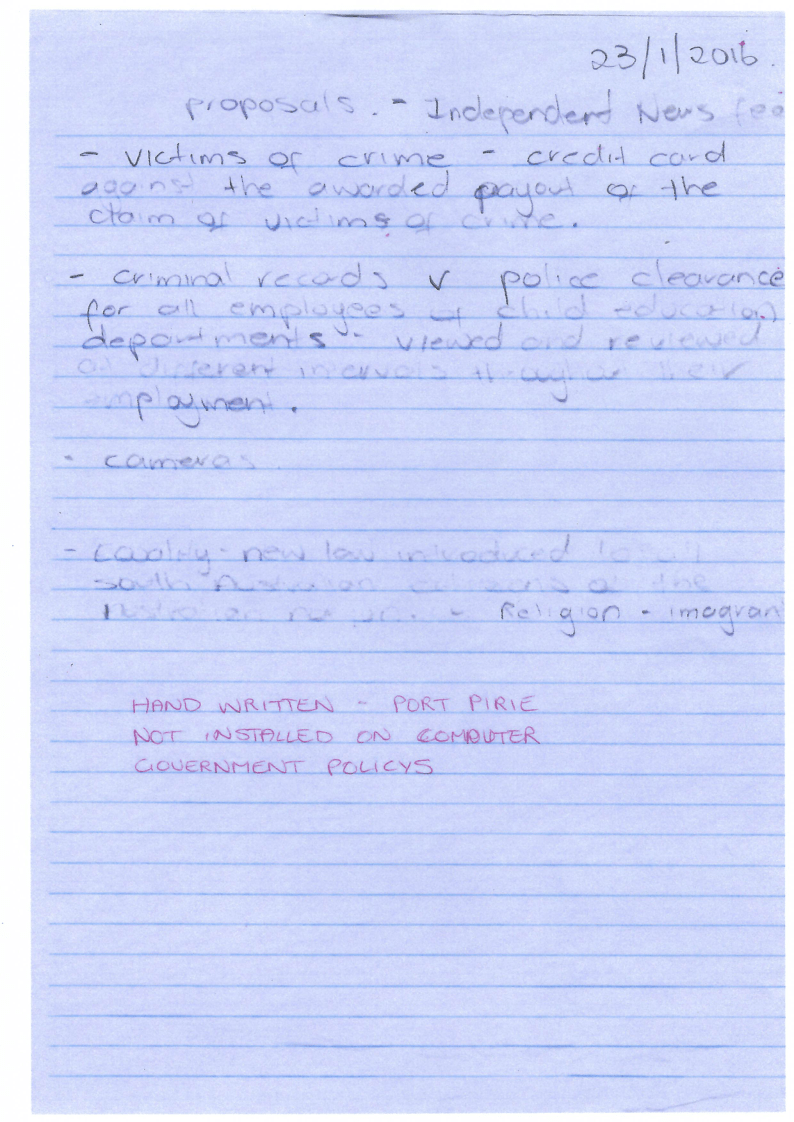 23/1/2016.
proposals. - Independent News fee
- victims of crime - credit card
against the awarded payout of the
claim of victims of crime.
- criminal records v police clearance
for all employees of child education
departments - viewed and reviewed
at different intervals throughout their
employment.
- cameras
- new law introduced to all
south Australian citizens of the
Australian - Religion - imagrant
HAND WRITTEN - PORT PIRIE
NOT INSTALLED ON COMPUTER
GOVERNMENT POLICYS